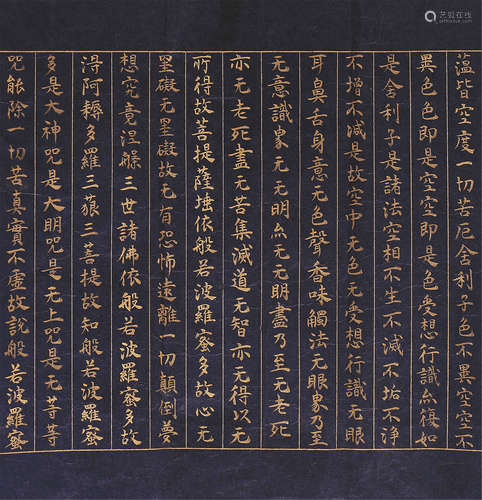 蕰皆空度一切苦厄舍利子色不異空空不
異色色即是空空即是色受想行識亦復如
是舍利子是諸法空相不生不滅不垢不淨
不增不減是故空中无色无受想行識无眼
耳鼻舌身意无色聲香味觸法无眼界乃至
无意識界无无明亦无无明盡乃至无老死
亦无老死盡无苦集滅道无智亦无得以无
所得故菩提薩埵依般若波羅蜜多故心无
罣礙无罣礙故无有恐怖遠離一切顛倒夢
想究竟涅槃三世諸佛依般若波羅蜜多故
得阿耨多羅三藐三菩提故知般若波羅蜜
多是大神咒是大明咒是无上咒是无等等
咒能除一切苦真實不虛故說般若波羅蜜
艺狐在线